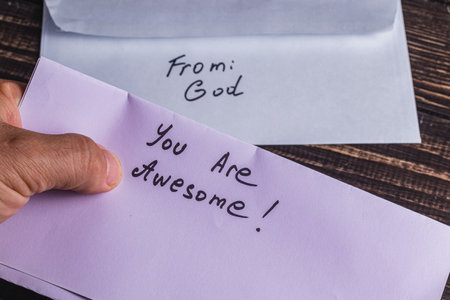 From:
God
You Are
Awesome!